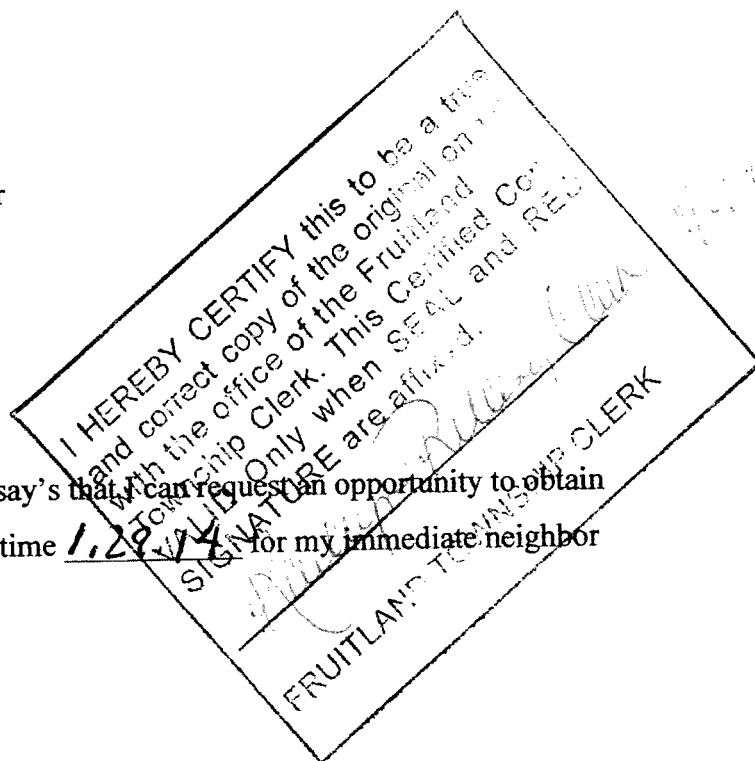 r
I HEREBY CERTIFY this to be a true
and correct copy of the original on
with the office of the Fruitland
Township Clerk. This Certified
VALID Only when SEAL and RED
SIGNATURE are affixed.
FRUITLAND TOWNSHIP CLERK
say's that I can request an opportunity to obtain
time 1.29.14 for my immediate neighbor